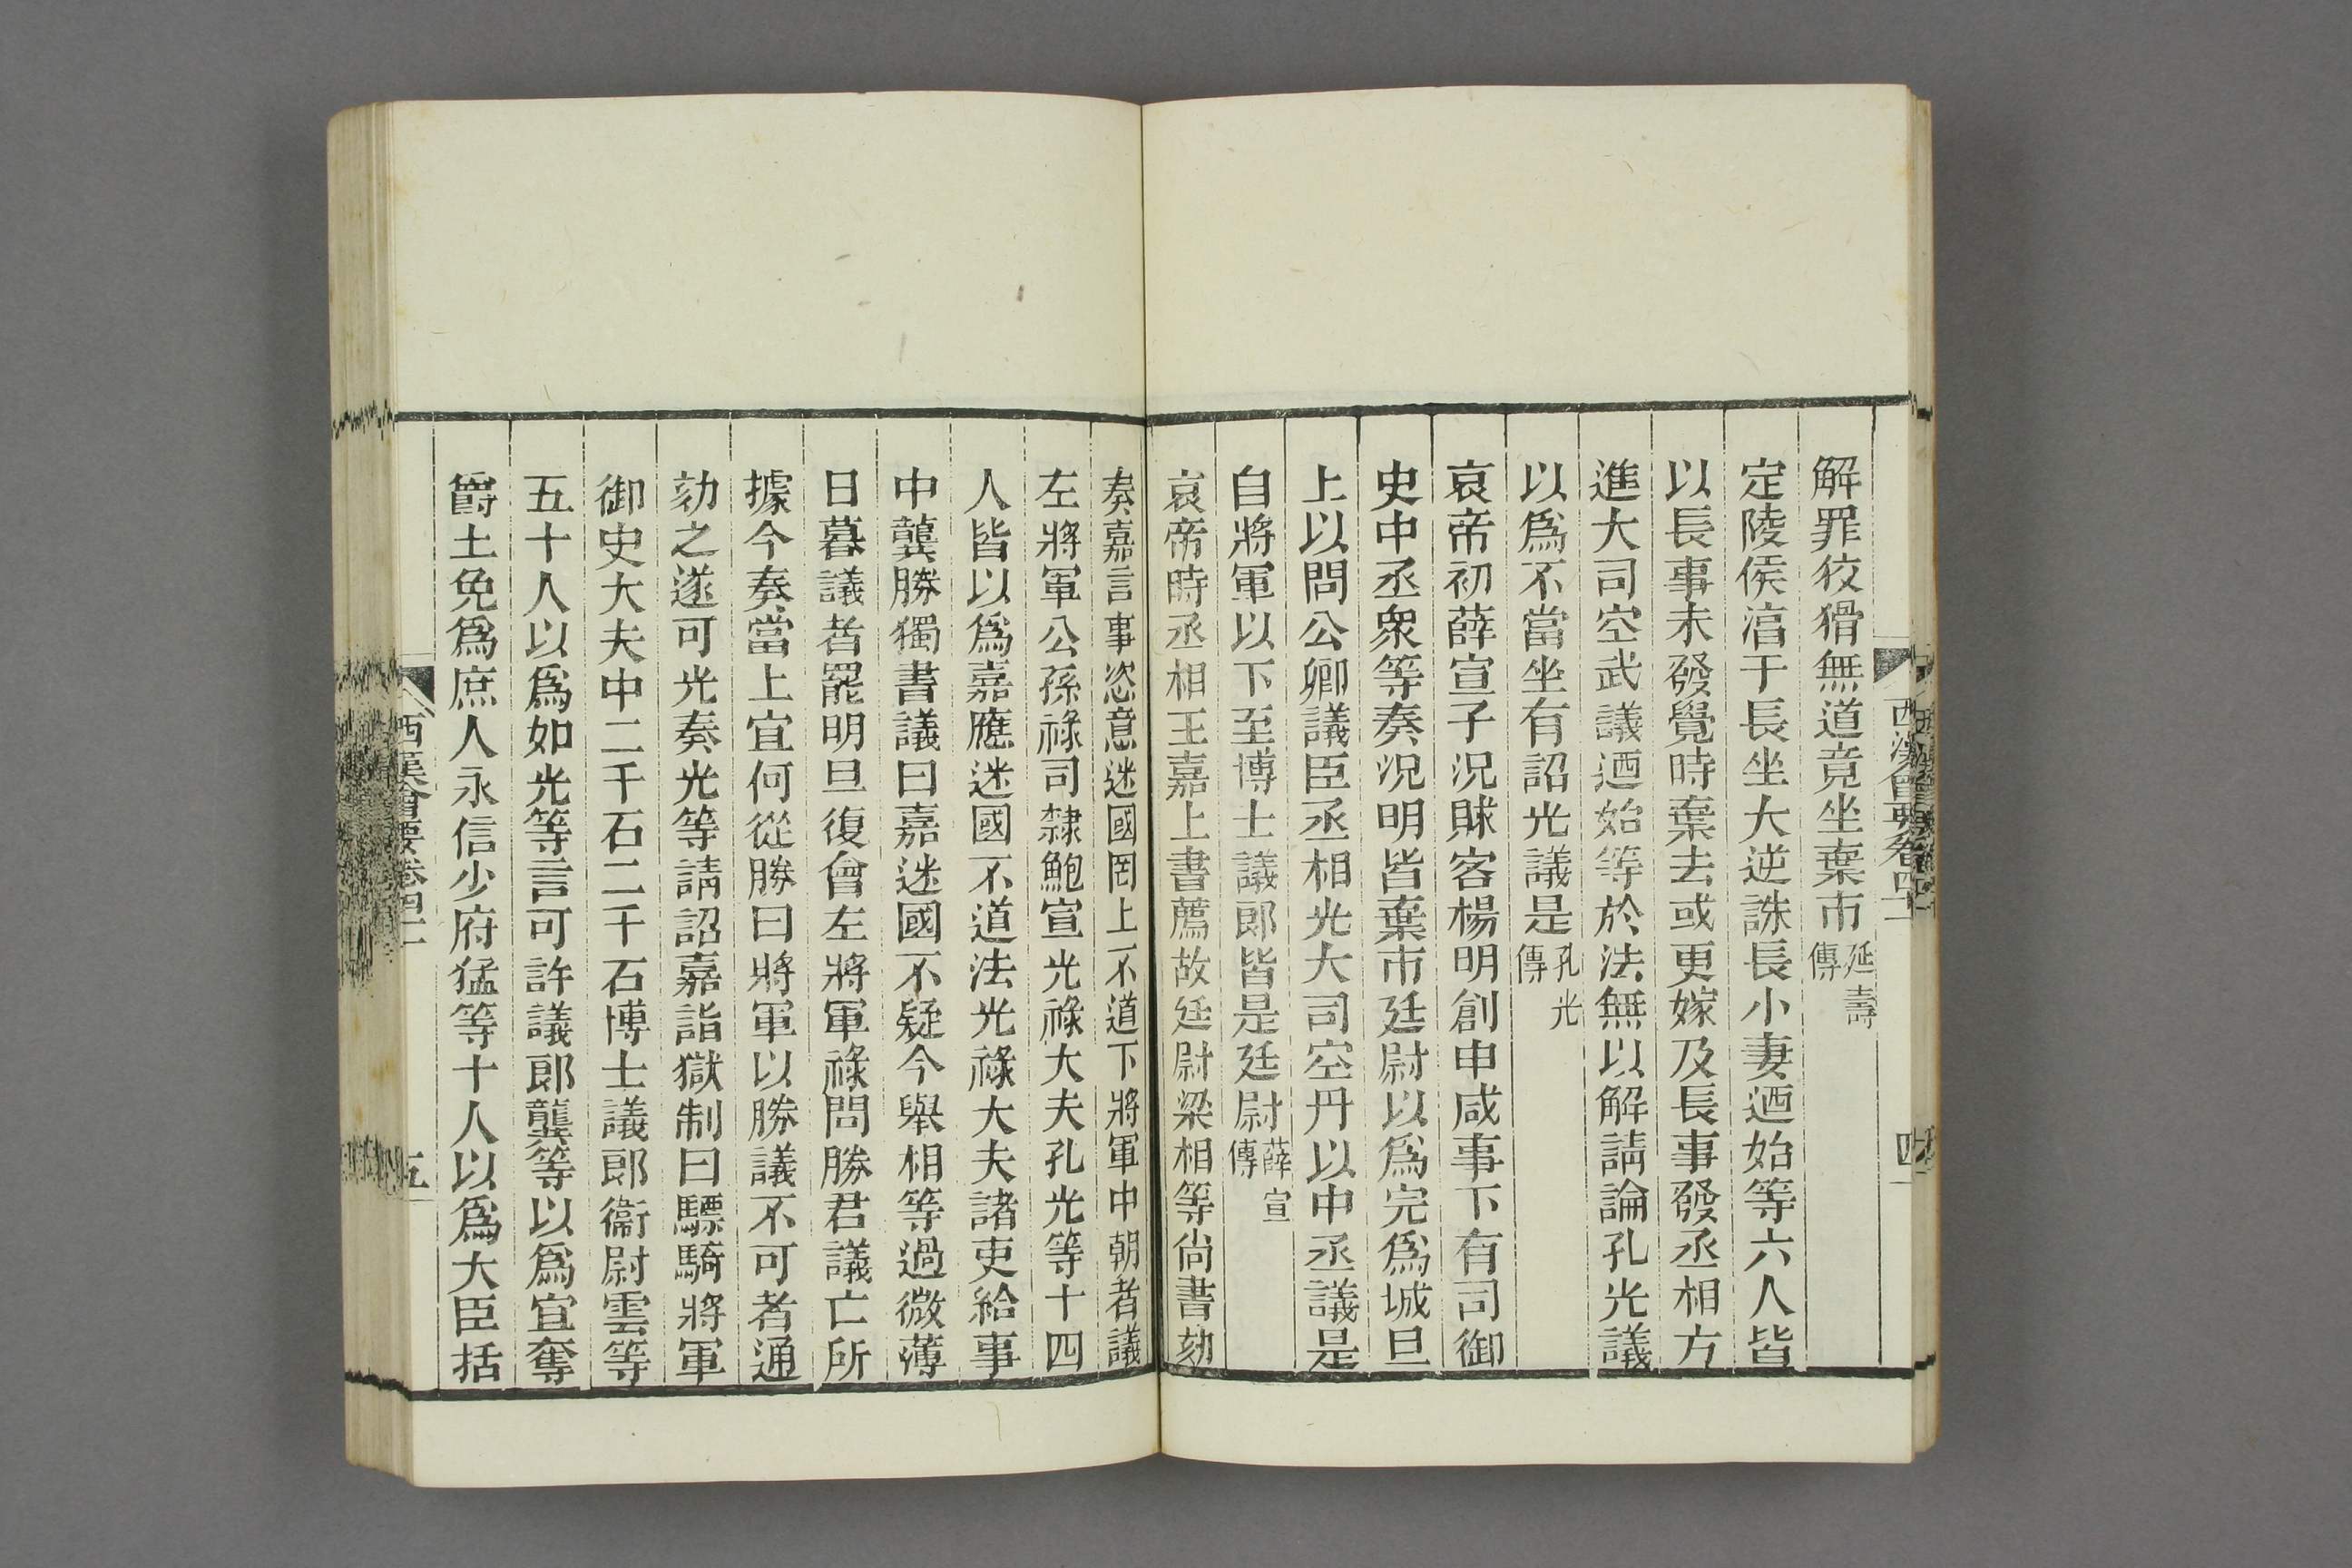 解罪狡猾無道竟坐棄市延壽傳
定陵侯淯于長坐大逆誅長小妻迺始等六人皆
以長事未發覺時棄去或更嫁及長事發丞相方
進大司空武議迺始等於法無以解請論孔光議
以爲不當坐有詔光議是孔光傳
哀帝初薛宣子況賕客楊明創申咸事下有司御
史中丞衆等奏況明皆棄市廷尉以爲完爲城旦
上以問公卿議臣丞相光大司空丹以中丞議是
自將軍以下至博士議郎皆是廷尉薛宣傳
哀帝時丞相王嘉上書薦故廷尉梁相等尚書劾
奏嘉言事恣意迷國罔上不道下將軍中朝者議
左將軍公孫祿司隸鮑宣光祿大夫孔光等十四
人皆以爲嘉應迷國不道法光祿大夫諸吏給事
中龔勝獨書議曰嘉迷國不疑今舉相等過微薄
日暮議者罷明旦復會左將軍祿問勝君議亡所
據今奏當上宜何從勝曰將軍以勝議不可者通
劾之遂可光奏光等請詔嘉詣獄制曰驃騎將軍
御史大夫中二千石二千石博士議郎衞尉雲等
五十人以爲如光等言可許議郎龔等以爲宜奪
爵土免爲庶人永信少府猛等十人以爲大臣括
西漢會要卷四十二
五